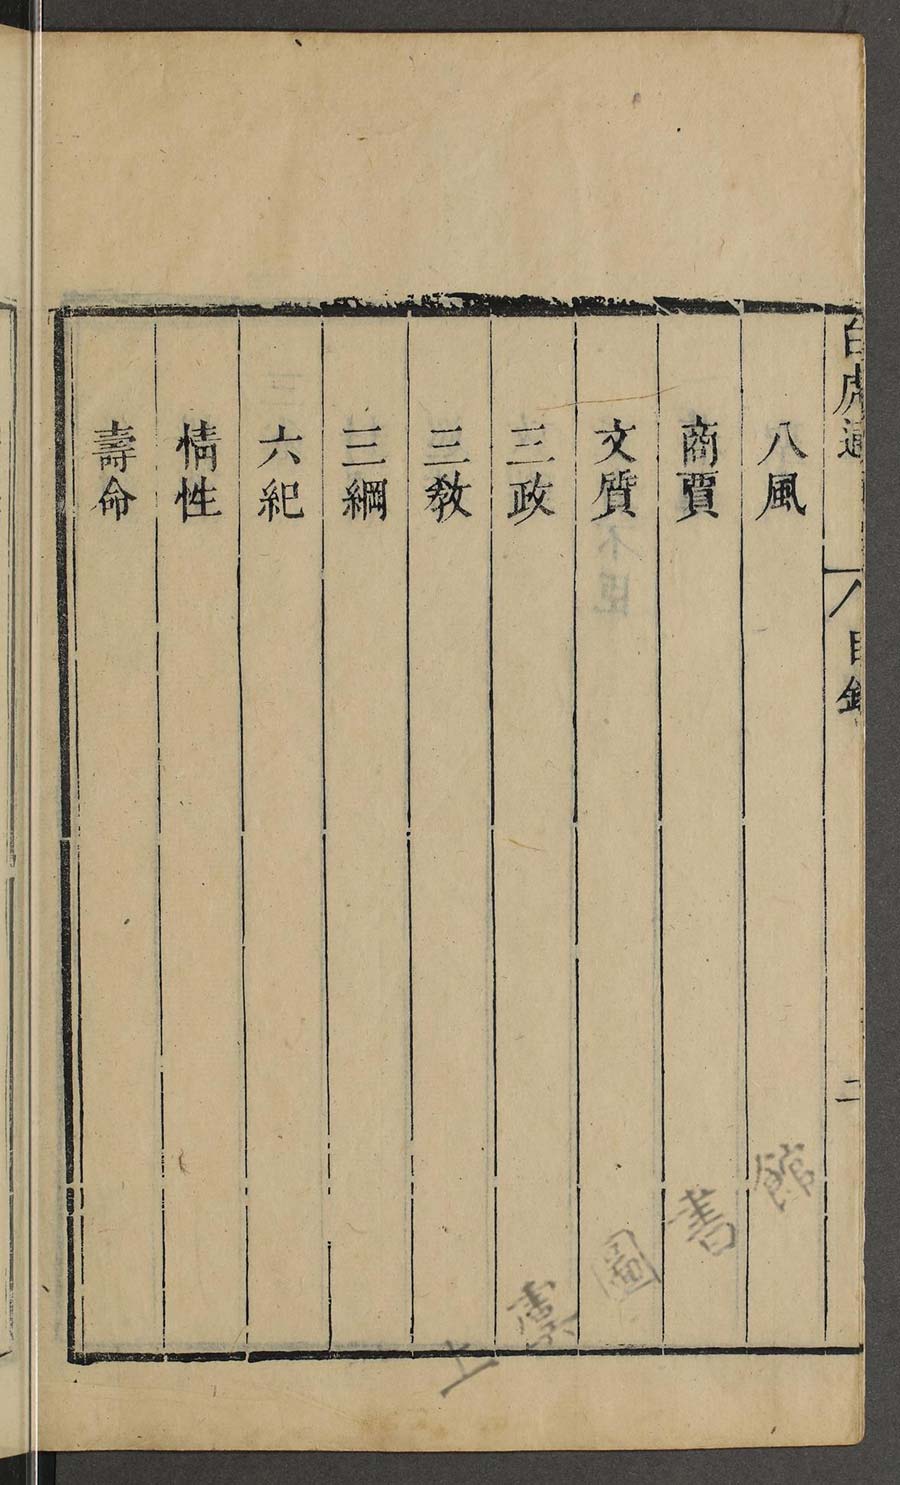 白虎通
目錄
二
八風
商賈
文質
三政
三教
三綱
六紀
情性
壽命
上虞圖書館